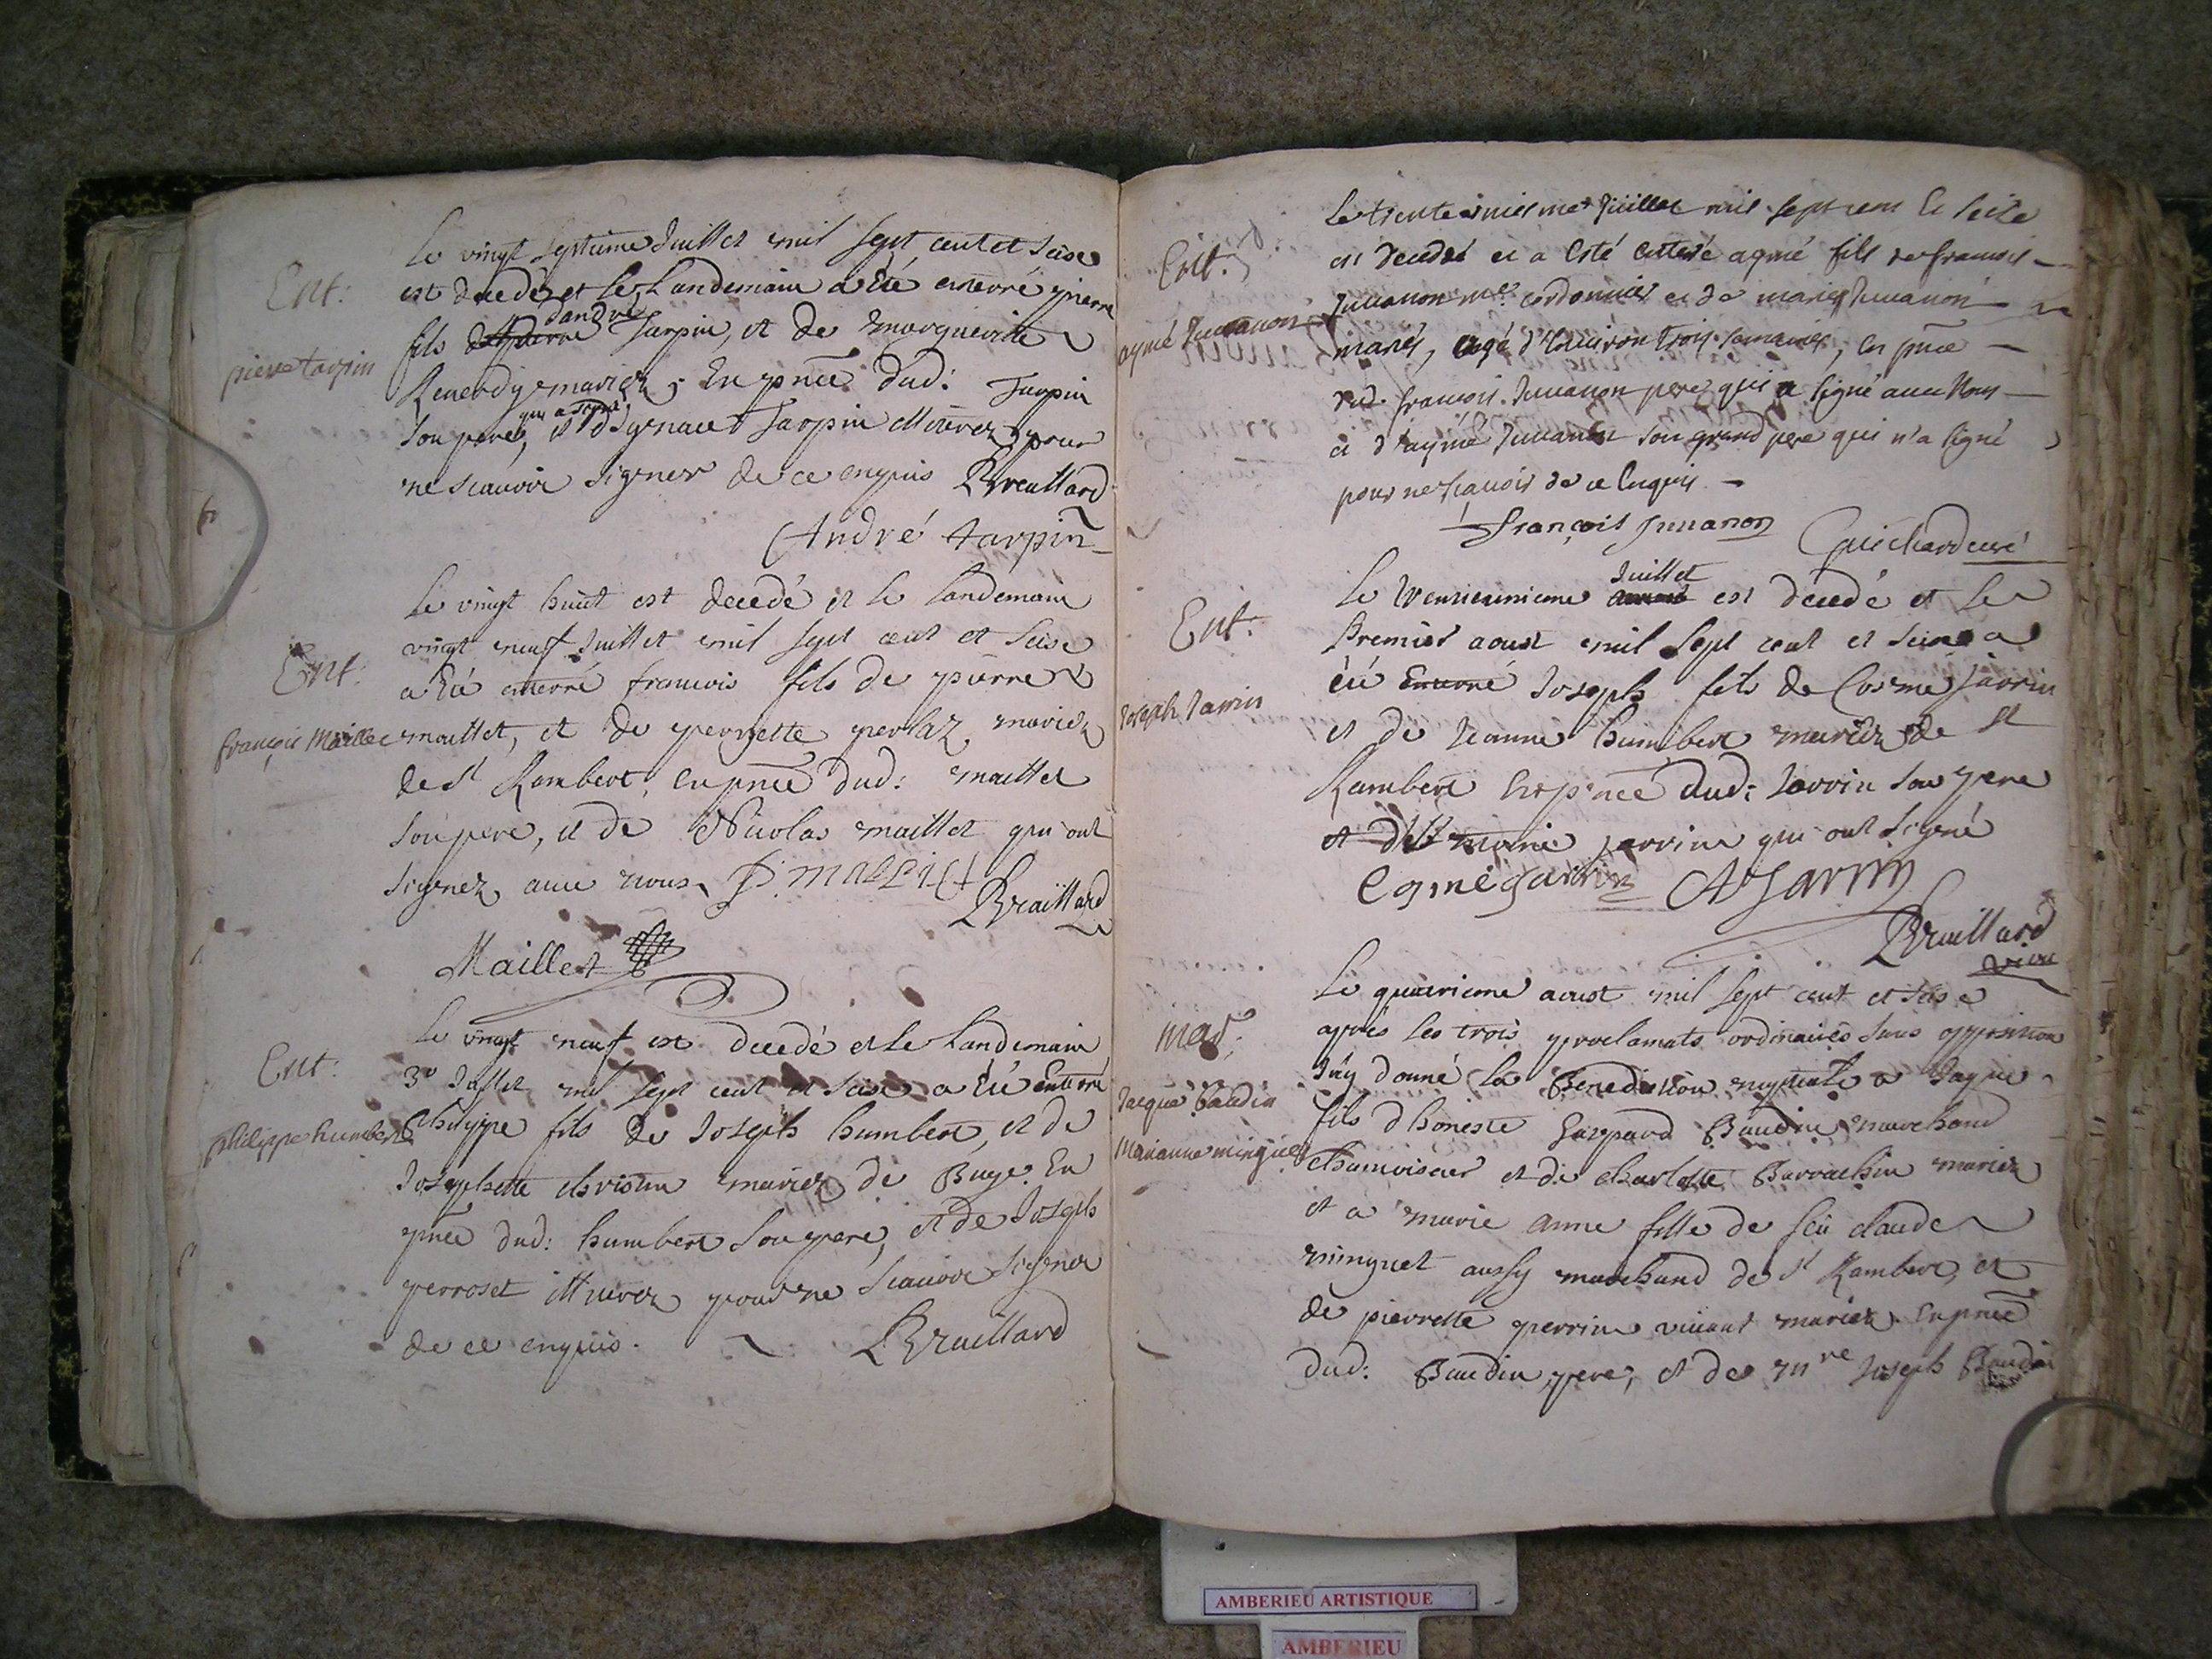 Ent:
pierre tarpin
Le vingt septieme Juillet mil sept cent et seise
est decedé et le Landemain a eté enterré pierre
fils de pierre dandré Tarpin, et de marguerite
Reverdy mariez; En pñce dud: Tarpin
son pere, qui a signé et d'ignace Tarpin illiterez pour
ne scauoir signer de ce enquis Brvaillard
André tarpin
Ent:
françois Maillet
Le vingt huict est decedé et le landemain
vingt neuf Juillet mil sept cent et seise
a eté enterré francois fils de pierre
maillet, et de pernette perlaz mariez
de st Rambert, en pñce dud: maillet
son pere, et de Nicolas maillet qui ont
signez auec nous P. MALLIET
Brvaillard
Maillet
Ent:
philippe humbert
Le vingt neuf est decedé et le Landemain
30 Juillet mil sept cent et seise a eté enterré
philippe fils de Joseph humbert, et de
Josephette christin mariez de Buge. En
pñce dud: humbert son pere, et de Joseph
perroset illiterez pour ne scauoir signer
de ce enquis. Brvaillard
Ent:
aymé Juuanon
Le trente uniesme Juillet mil sept cens et seize
est decedé et a esté enterré aymé fils de francois
Juuanon me cordonnier et de marie Juuanon
mariés, agé d'enuiron trois semaines, en pñce
dud. françois Juuanon pere qui a signé auec Nous
et d'aymé Juuanon son grand pere qui n'a signé
pour ne sçauoir de ce Enquis
françois Juuanon Guichard curé
Ent:
Joseph Jarrin
Le trenteunieme aoust Juillet est décedé et le
Premier aoust mil sept cent et seise a
eté Enterré Joseph fils de Cosme jarrin
et de Jeanne humbert mariez de st
Rambert En pñce dud: Jarrin son pere
et jarrin qui ont signé
Cosmé Jarrin A Jarrin
Brvaillard
vic
Mar:
Jacque Baudin
Marianne minguet
Le quatrieme aoust mil sept cent et seise
aprés les trois proclamats ordinaires sans opposition
J'ay donné la Benediction nuptiale a Jaque
fils d'honeste Gaspard Baudin marchand
chamoiseur et de charlotte Barrachin mariez
et a marie anne fille de feu claude
minguet aussy marchand de st Rambert, et
de pierrette perrin viuant mariez. En pñce
dud: Baudin pere, et de mre Joseph Baudin
AMBERIEU ARTISTIQUE
AMBERIEU